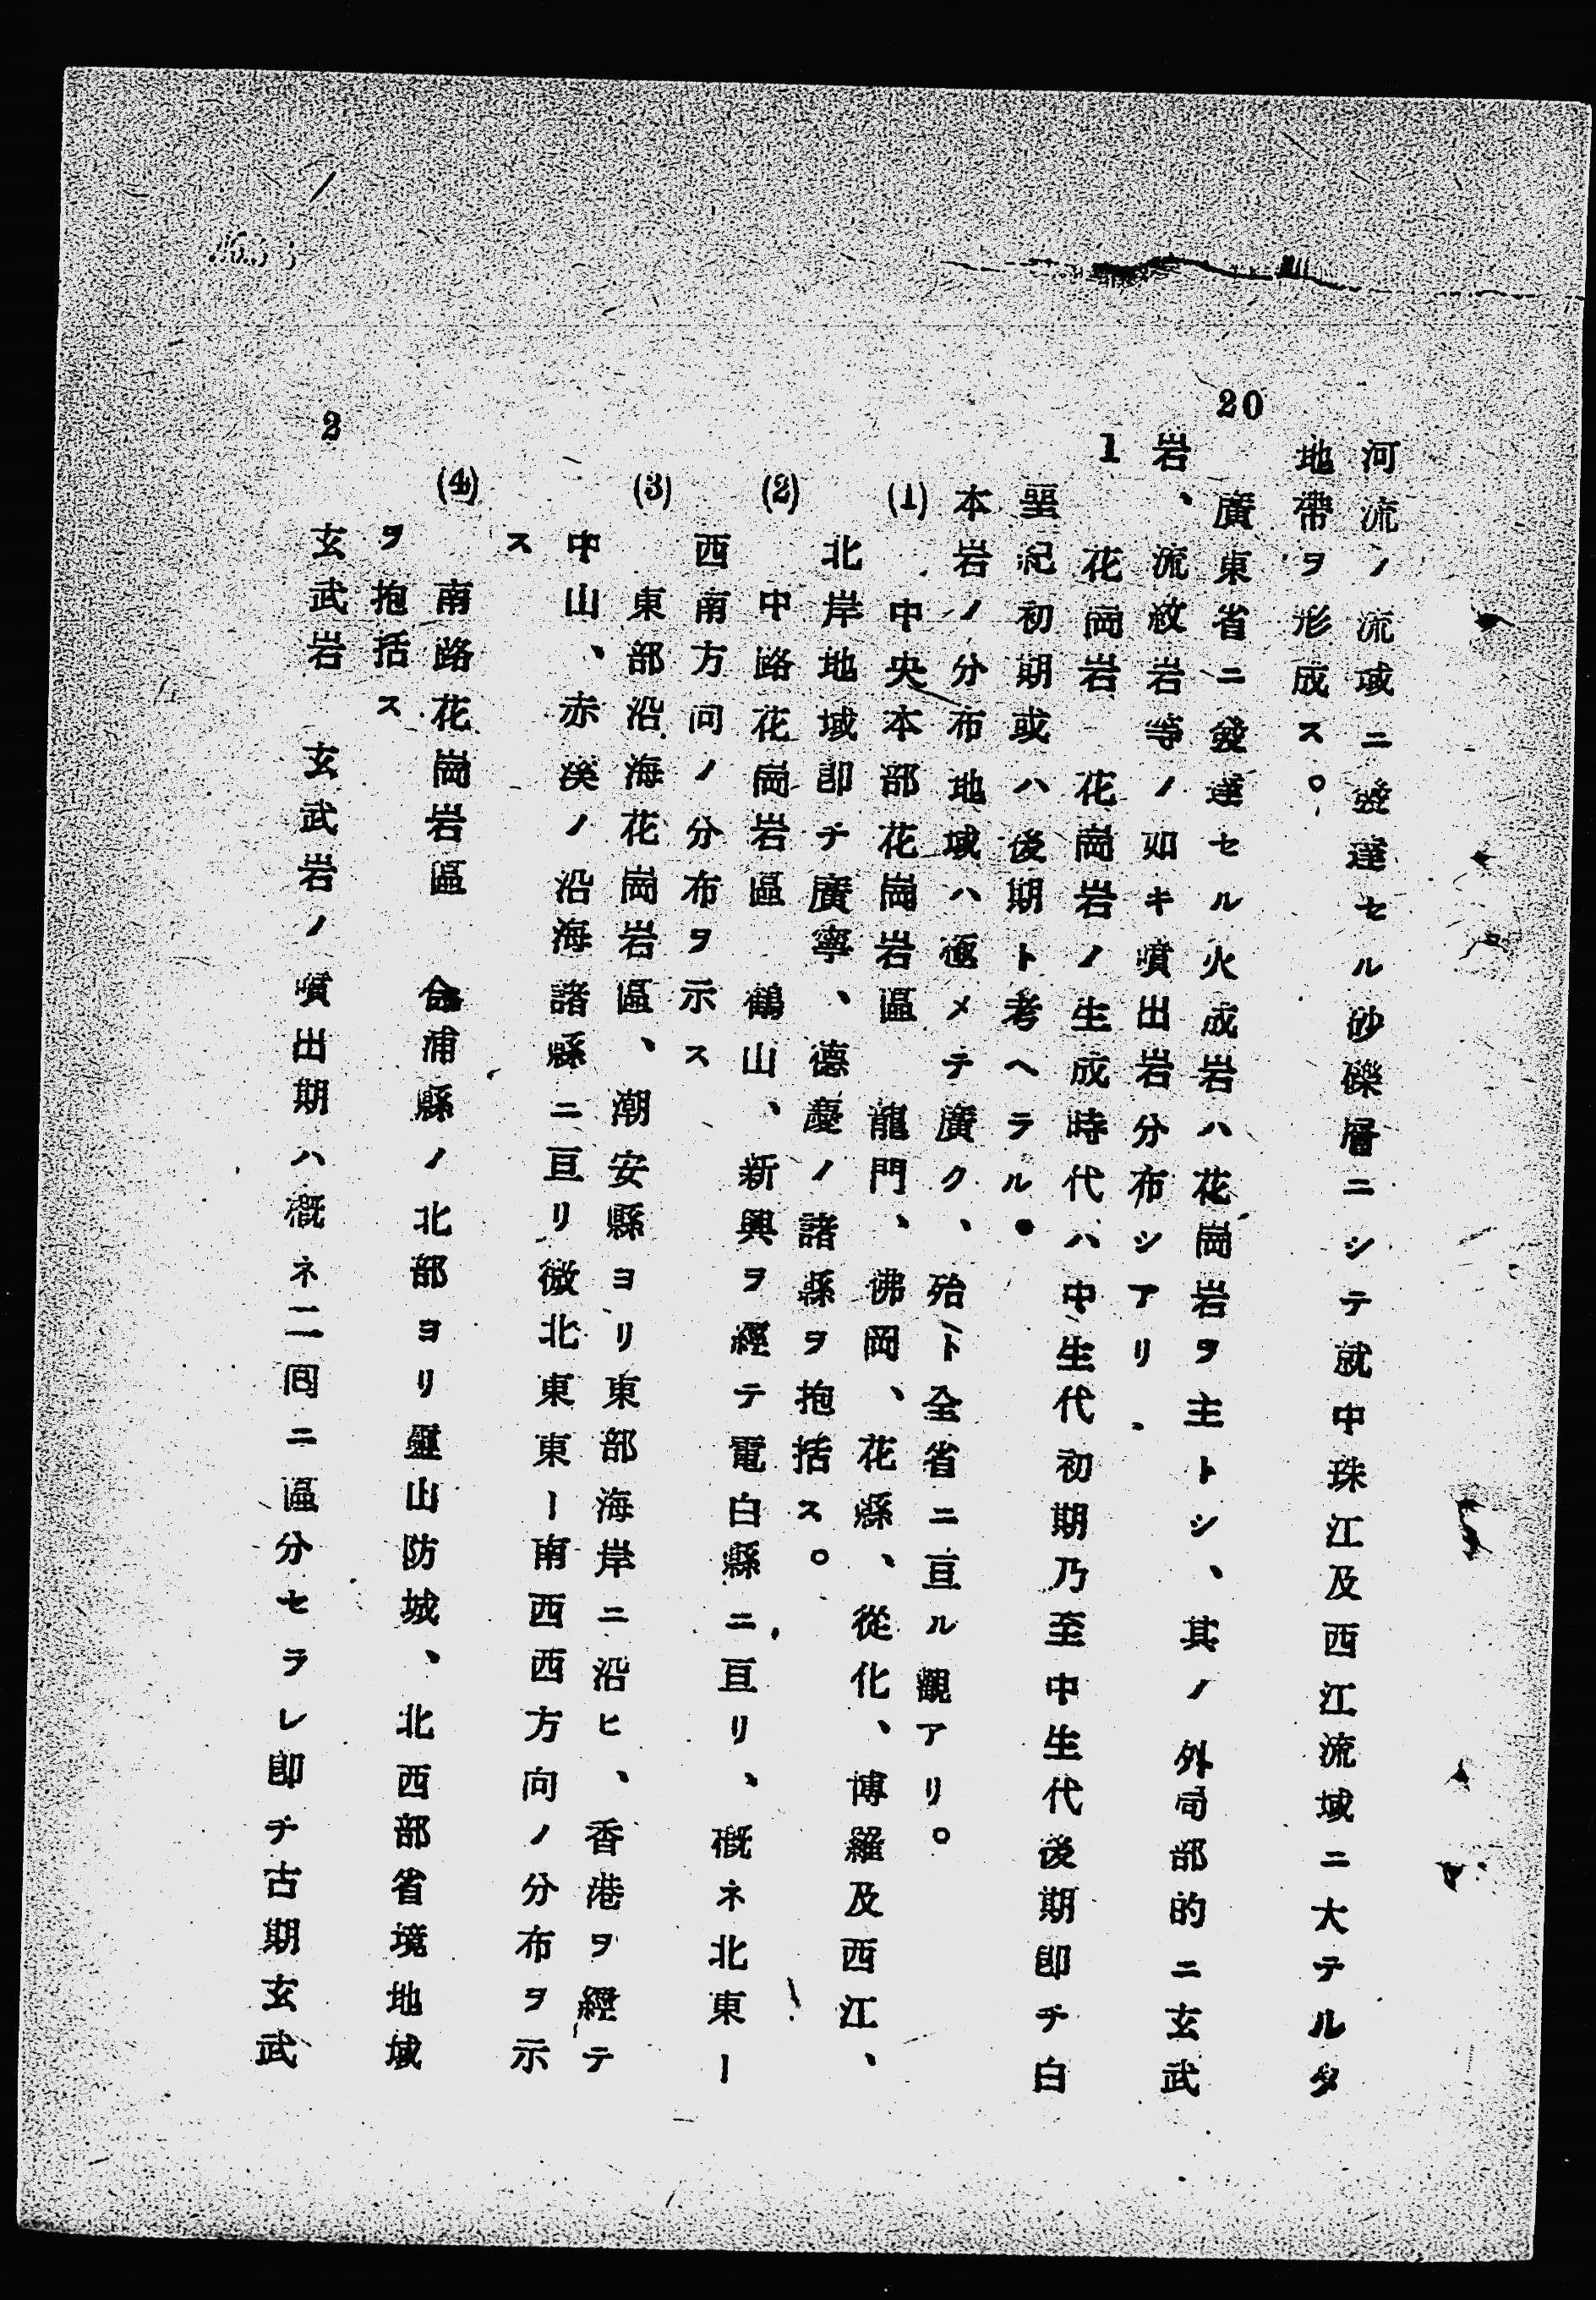 河流ノ流域ニ發達セル砂礫層ニシテ就中珠江及西江流域ニ大テルタ
地帶ヲ形成ス。
20
廣東省ニ發達セル火成岩ハ花崗岩ヲ主トシ、其ノ外局部的ニ玄武
岩、流紋岩等ノ如キ噴出岩分布シアリ
1 花崗岩 花崗岩ノ生成時代ハ中生代初期乃至中生代後期卽チ白
堊紀初期或ハ後期ト考ヘラル。
本岩ノ分布地域ハ極メテ廣ク、殆ト全省ニ亘ル觀アリ。
(1) 中央本部花崗岩區 龍門、佛岡、花縣、從化、博羅及西江、
北岸地域卽チ廣寧、德慶ノ諸縣ヲ抱括ス。
(2) 中路花崗岩區 鶴山、新興ヲ經テ電白縣ニ亘リ、槪ネ北東ー
西南方向ノ分布ヲ示ス
(3) 東部沿海花崗岩區、潮安縣ヨリ東部海岸ニ沿ヒ、香港ヲ經テ
中山、赤溪ノ沿海諸縣ニ亘リ微北東東ー南西西方向ノ分布ヲ示
ス
(4) 南路花崗岩區 合浦縣ノ北部ヨリ靈山防城、北西部省境地域
ヲ抱括ス
2 玄武岩 玄武岩ノ噴出期ハ槪ネ二囘ニ區分セラレ卽チ古期玄武